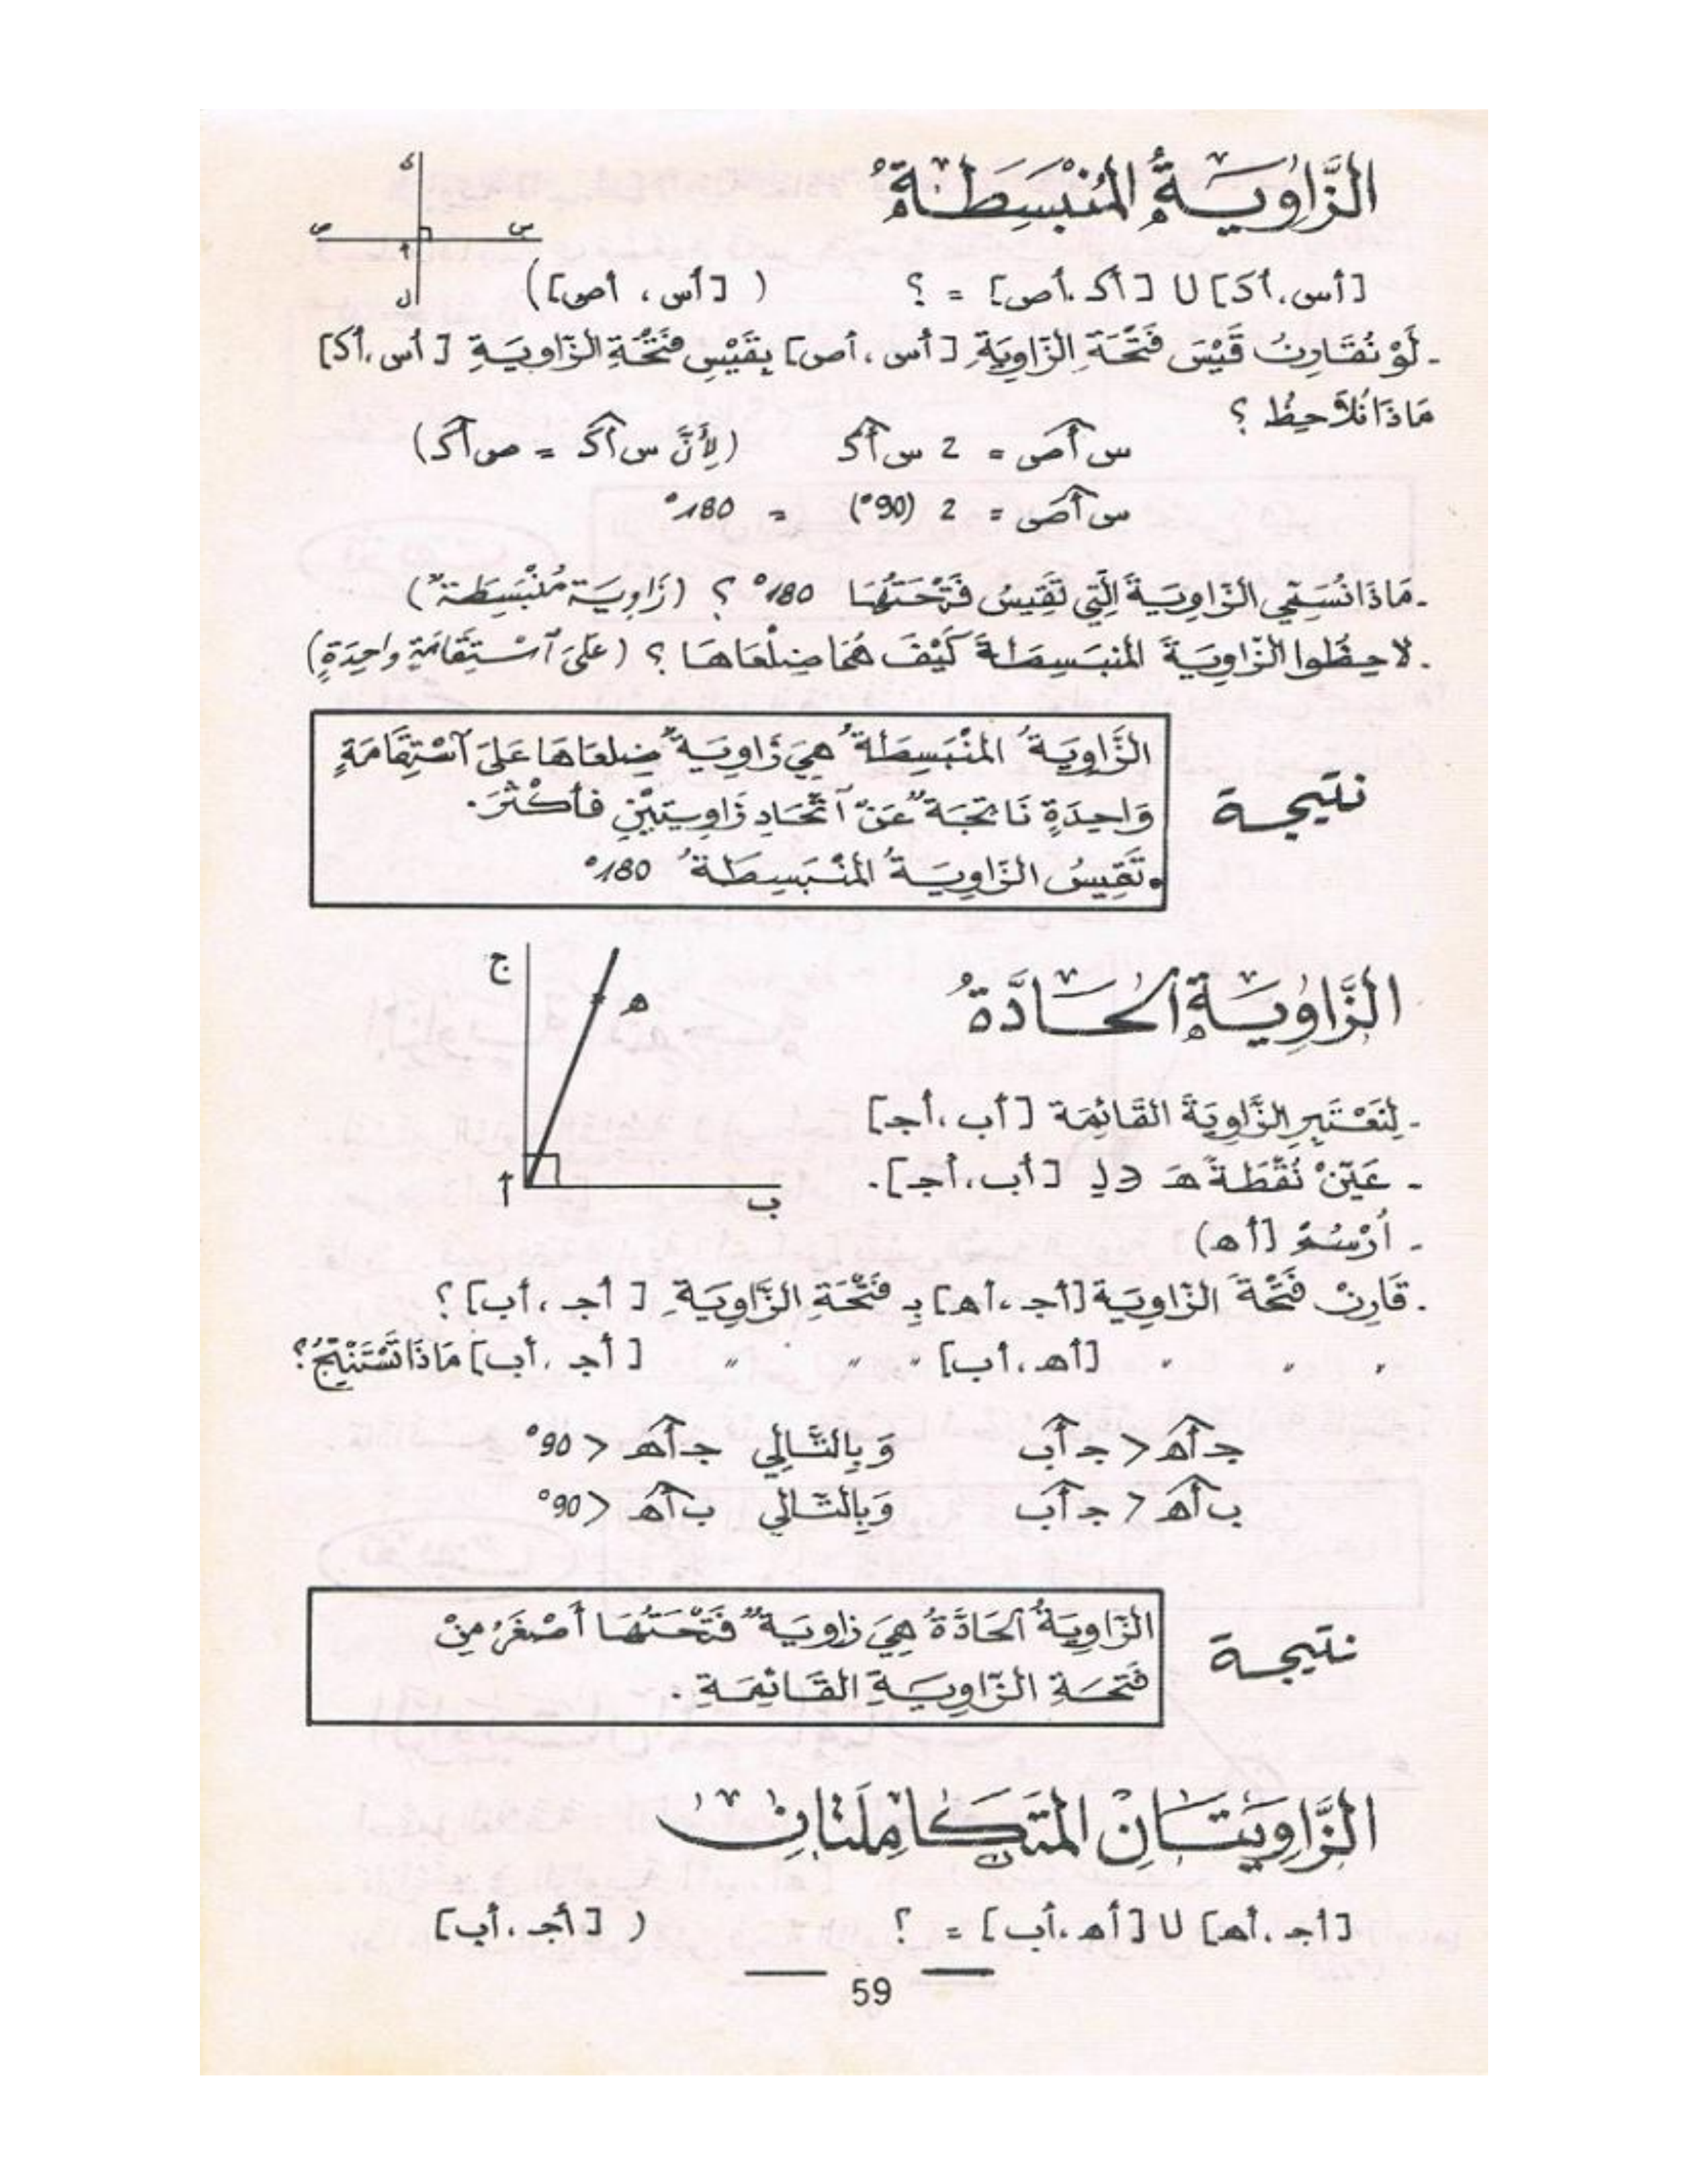 الزَّاوِيَةُ المُنْبَسِطَةُ
ك
ص س
أ
ل
[أس،أكـ] U [أكـ،أص] = ؟ ( [أس، أص])
- لَوْ نُقَارِنُ قَيْسَ فَتْحَةِ الزَّاوِيَةِ [أس، أص] بِقَيْسِ فَتْحَةِ الزَّاوِيَةِ [أس،أكـ]
مَاذَا نُلاَحِظُ ؟
س أص = 2 س أكـ (لِأَنَّ س أكـ = ص أكـ)
س أص = 2 (90°) = 180°
- مَاذَا نُسَمِّي الزَّاوِيَةَ الَّتِي تَقِيسُ فَتْحَتُهَا 180° ؟ (زَاوِيَة مُنْبَسِطَة)
- لاحِظُوا الزَّاوِيَةَ المُنبَسِطَةَ كَيْفَ هُمَا ضِلْعَاهَا ؟ (عَلَى ٱسْتِقَامَةٍ واحِدَةٍ)
الزَّاوِيَةُ المُنْبَسِطَةُ هِيَ زَاوِيَةٌ ضِلعَاهَا عَلَى ٱسْتِقَامَةٍ
نتيجة
وَاحِدَةٍ نَاتِجَةٌ عَنْ ٱتِّحَادِ زَاوِيَتَيْنِ فأكْثَرَ.
.تَقِيسُ الزَّاوِيَةُ المُنْبَسِطَةُ 180°
ج
ه
أ
ب
الزَّاوِيَةُ الحَادَّةُ
- لِنَعْتَبِرِ الزَّاوِيَةَ القَائِمَة [أب،أجـ]
- عَيِّنْ نُقْطَةً هـ ∋ لِـ [أب،أجـ].
- اُرْسُمْ [أهـ)
- قَارِنْ فَتْحَةَ الزَّاوِيَة [أجـ،أهـ] بِـ فَتْحَةِ الزَّاوِيَةِ [أجـ،أب] ؟
" " " [أهـ،أب] " " " [أجـ،أب] مَاذَا تَسْتَنْتِجُ ؟
جـ أهـ < جـ أب وَبِالتَّالِي جـ أهـ < 90°
ب أهـ < جـ أب وَبِالتَّالِي ب أهـ < 90°
الزَّاوِيَةُ الحَادَّةُ هِيَ زاوِيَةٌ فَتْحَتُهَا أَصْغَرُ مِنْ
نتيجة
فَتحَةِ الزَّاوِيَةِ القَائِمَةِ .
الزَّاوِيَتَانِ المُتَكَامِلَتَانِ
[أجـ،أهـ] U [أهـ،أب] = ؟ ( [أجـ،أب]
59